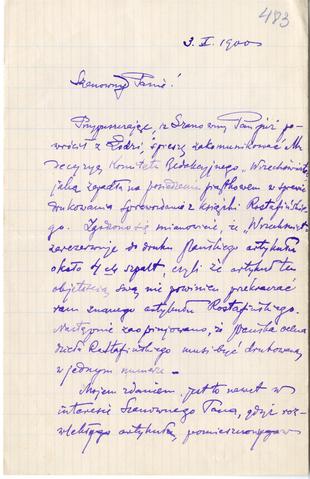 483
3. X. 1900
Szanowny Panie!
Przypuszczając, iż Szanowny Pan już po-
wrócił z Łodzi, śpieszę zakomunikować Mu
decyzyę Komitetu Redakcyjnego „Wszechświata”,
jaka zapadła na posiedzeniu piątkowem w sprawie
drukowania sprawozdania z książki Rostafińskie-
go. Zgodzono się mianowicie, że „Wszechświat”
zarezerwuje do druku Pańskiego artykułu
około 4 szpalt, czyli że artykuł ten
objętością swą nie powinien przekraczać
ram znanego artykułu Rostafińskiego.
Następnie zaopinjowano, że Pańska ocena
dzieła Rostafińskiego musi być drukowaną
w jednym numerze. –
Mojem zdaniem, jest to nawet w
interesie Szanownego Pana, gdyż roz-
wlekłego artykułu, pomieszczonego w